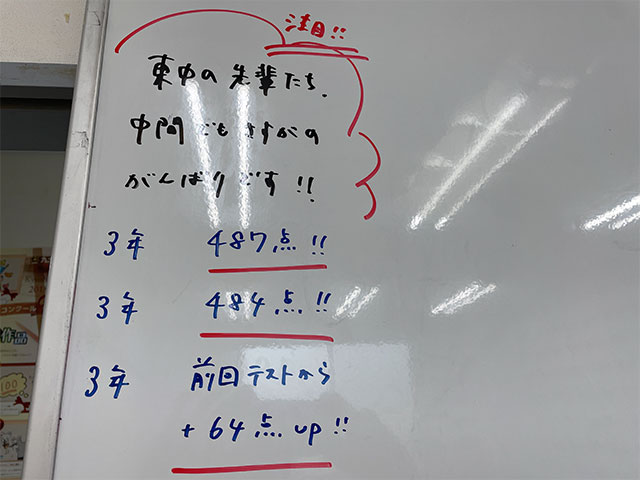 注目!!
東中の先輩たち、
中間でもさすがの
がんばりです!!
3年 487点!!
3年 484点!!
3年 前回テストから
+64点up!!
作品
100